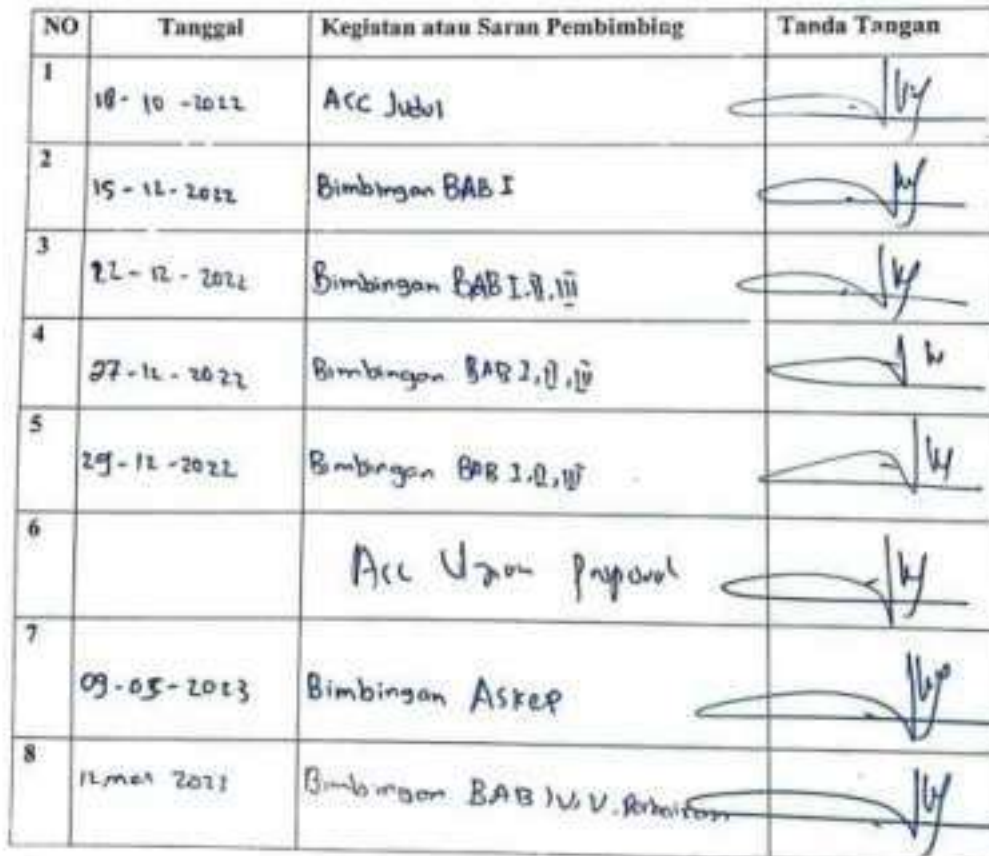 NO Tanggal Kegiatan atau Saran Pembimbing Tanda Tangan
1 18-10-2022 Acc Judul
2 15-12-2022 Bimbingan BAB I
3 22-12-2022 Bimbingan BAB I.II.III
4 27-12-2022 Bimbingan BAB I,II,III
5 29-12-2022 Bimbingan BAB I,II,III
6 Acc Ujian Proposal
7 09-05-2023 Bimbingan ASKEP
8 12 mei 2023 Bimbingan BAB IV, V.